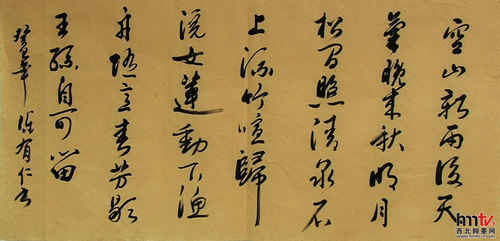 空山新雨後天
氣晚来秋明月
松間照清泉石
上流竹喧歸
浣女蓮動下漁
舟隨意春芳歇
王孫自可留
有仁书
hmtv